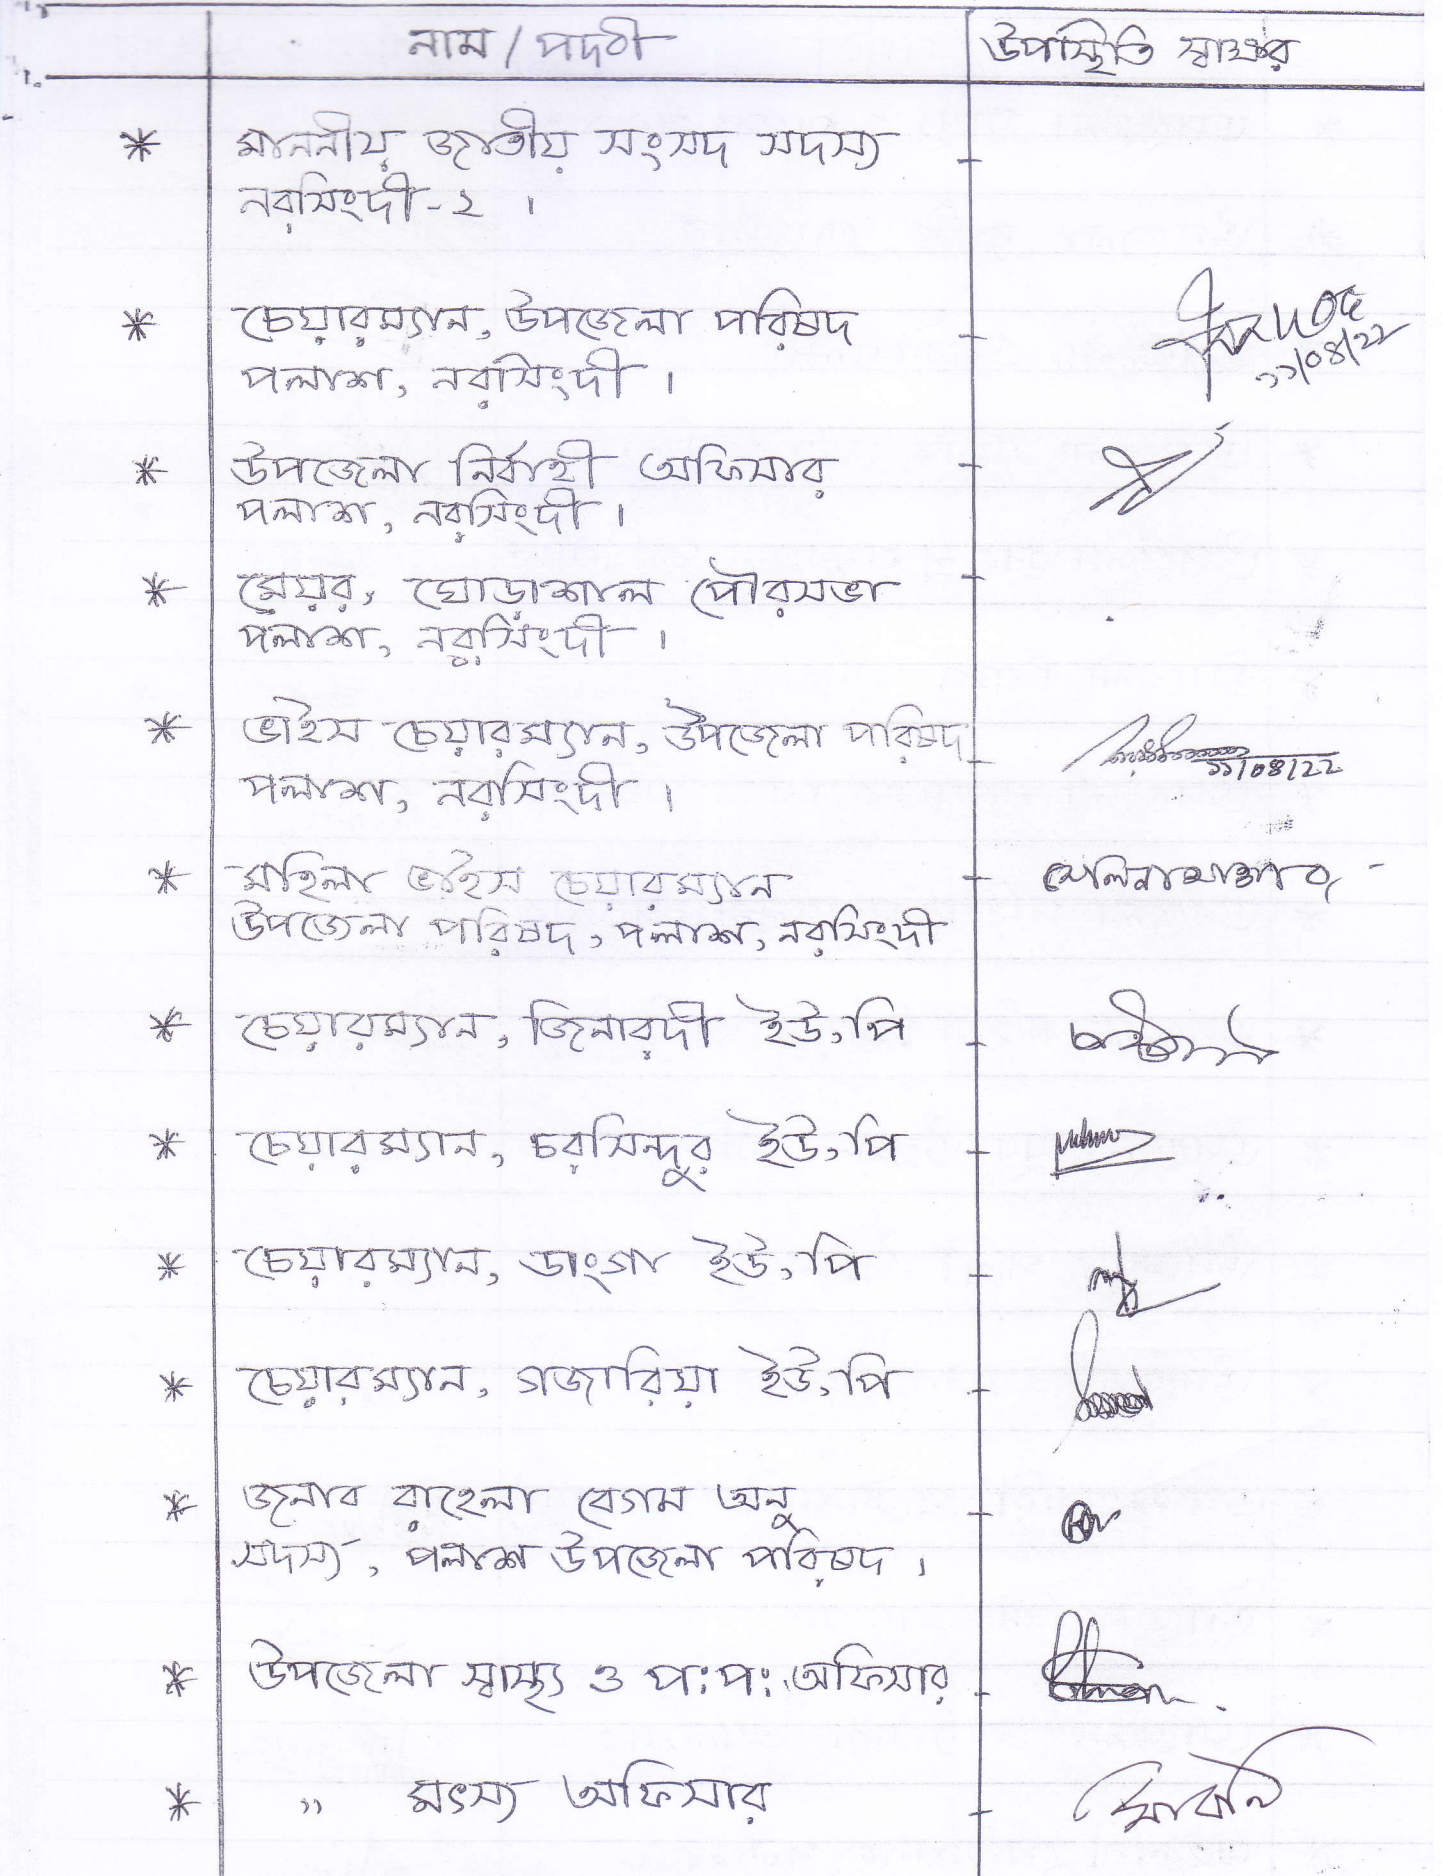 নাম / পদবী উপস্থিতি স্বাক্ষর
* মাননীয় জাতীয় সংসদ সদস্য
নরসিংদী-২ ।
* চেয়ারম্যান, উপজেলা পরিষদ
পলাশ, নরসিংদী ।
১১/০৪/২২
* উপজেলা নির্বাহী অফিসার
পলাশ, নরসিংদী ।
* মেয়র, ঘোড়াশাল পৌরসভা
পলাশ, নরসিংদী ।
* ভাইস চেয়ারম্যান, উপজেলা পরিষদ
১১/০৪/২২
পলাশ, নরসিংদী ।
* মহিলা ভাইস চেয়ারম্যান
উপজেলা পরিষদ, পলাশ, নরসিংদী
* চেয়ারম্যান, জিনারদী ইউ,পি
* চেয়ারম্যান, চরসিন্দুর ইউ,পি
* চেয়ারম্যান, ডাংগা ইউ,পি
* চেয়ারম্যান, গজারিয়া ইউ,পি
* জনাব রাহেলা বেগম অনু
সদস্য, পলাশ উপজেলা পরিষদ ।
* উপজেলা স্বাস্থ্য ও প:প: অফিসার
* ,, মৎস্য অফিসার